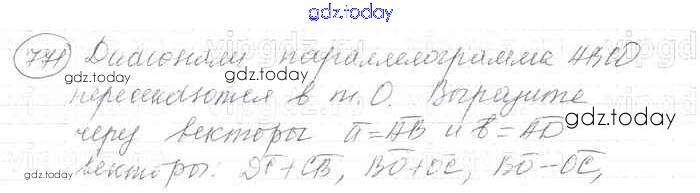 gdz.today
771 Диагонали параллелограмма ABCD
пересекаются в т. O. Выразите
через векторы a̅=A̅B̅ и b̅=A̅D̅
векторы: D̅C̅+C̅B̅, B̅O̅+O̅C̅, B̅O̅-O̅C̅,
gdz.today
gdz.today
gdz.today
gdz.today